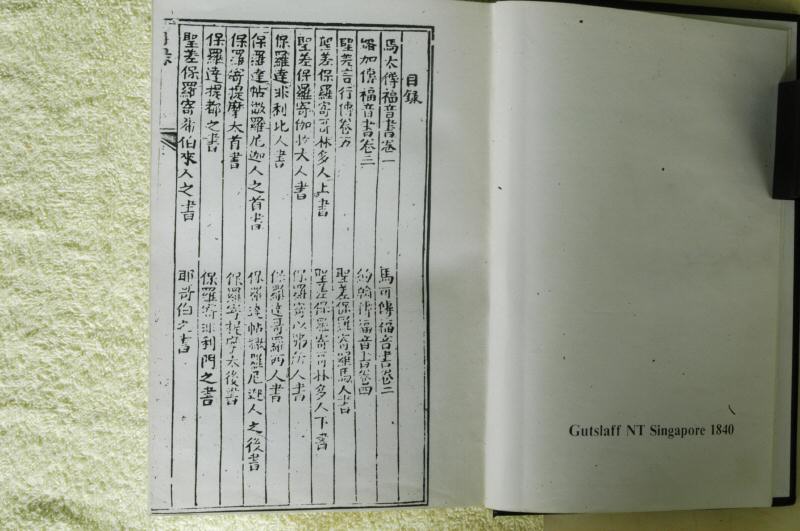 目錄
馬太傳福音書卷一
馬可傳福音書卷二
路加傳福音書卷三
約翰傳福音書卷四
聖差言行傳卷五
聖差保羅寄羅馬人書
聖差保羅寄哥林多人上書
聖差保羅寄哥林多人下書
聖差保羅寄伽拉太人書
保羅寄以弗所人書
保羅達非利比人書
保羅達哥羅西人書
保羅達帖撒羅尼迦人之首書
保羅達帖撒羅尼迦人之後書
保羅寄提摩太首書
保羅寄提摩太後書
保羅達提都之書
保羅寄非利門之書
聖差保羅寄希伯來人之書
耶哥伯之書
Gutslaff NT Singapore 1840